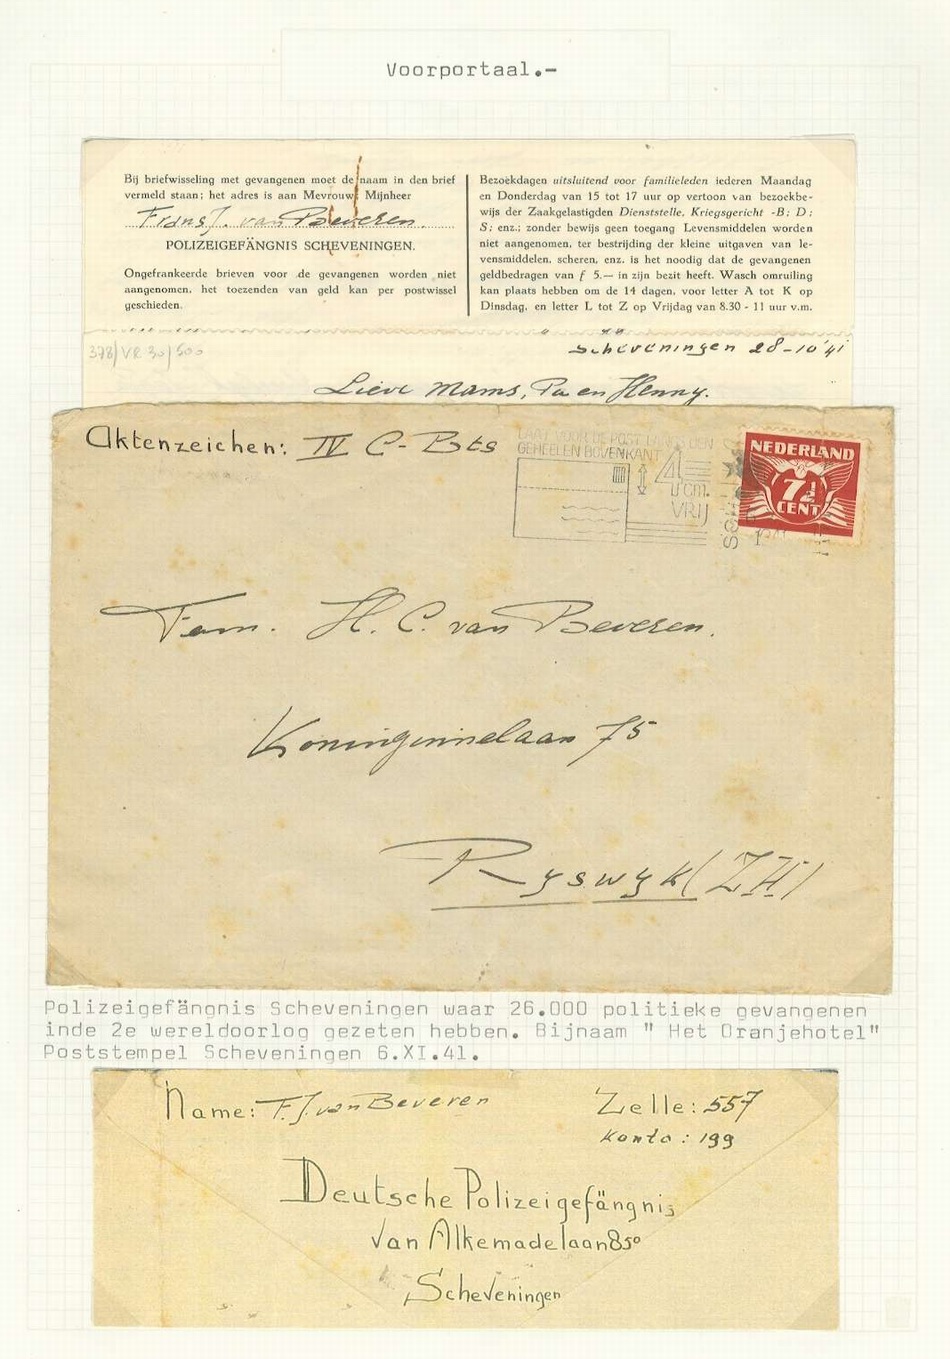 Voorportaal.-
Bij briefwisseling met gevangenen moet de naam in den brief
vermeld staan; het adres is aan Mevrouw, Mijnheer
Frans J. van Beveren.
POLIZEIGEFÄNGNIS SCHEVENINGEN.
Ongefrankeerde brieven voor de gevangenen worden niet
aangenomen, het toezenden van geld kan per postwissel
geschieden.
Bezoekdagen uitsluitend voor familieleden iederen Maandag
en Donderdag van 15 tot 17 uur op vertoon van bezoekbe-
wijs der Zaakgelastigden Dienststelle, Kriegsgericht -B; D;
S; enz.; zonder bewijs geen toegang Levensmiddelen worden
niet aangenomen, ter bestrijding der kleine uitgaven van le-
vensmiddelen, scheren, enz. is het noodig dat de gevangenen
geldbedragen van f 5.— in zijn bezit heeft. Wasch omruiling
kan plaats hebben om de 14 dagen, voor letter A tot K op
Dinsdag, en letter L tot Z op Vrijdag van 8.30 - 11 uur v.m.
378/VR 30/500
Scheveningen 28-10'41
Lieve Mams, Pa en Henny.
Aktenzeichen: IV C- Bts
LAAT VOOR DE POST LANGS DEN
GEHEELEN BOVENKANT
4
cm.
VRIJ
NEDERLAND
7½
CENT
Fam. H. C. van Beveren.
Koninginnelaan 75
Ryswyk (ZH)
Polizeigefängnis Scheveningen waar 26.000 politieke gevangenen
inde 2e wereldoorlog gezeten hebben. Bijnaam " Het Oranjehotel"
Poststempel Scheveningen 6.XI.41.
Name: F.J. van Beveren
Zelle: 557
Konto: 199
Deutsche Polizeigefängnis
van Alkemadelaan 850
Scheveningen